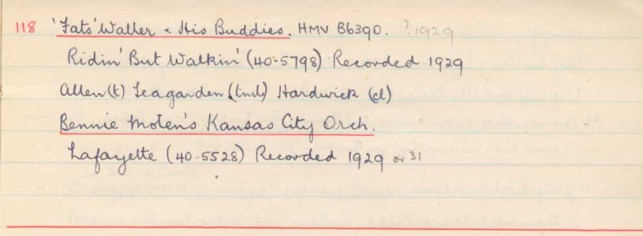 118 'Fats' Waller & His Buddies. HMV B6390. ? 1929
Ridin' But Walkin' (40-5798) Recorded 1929
Allen (t) Teagarden (tmb) Hardwick (cl)
Bennie Moten's Kansas City Orch.
Lafayette (40-5528) Recorded 1929 or 31